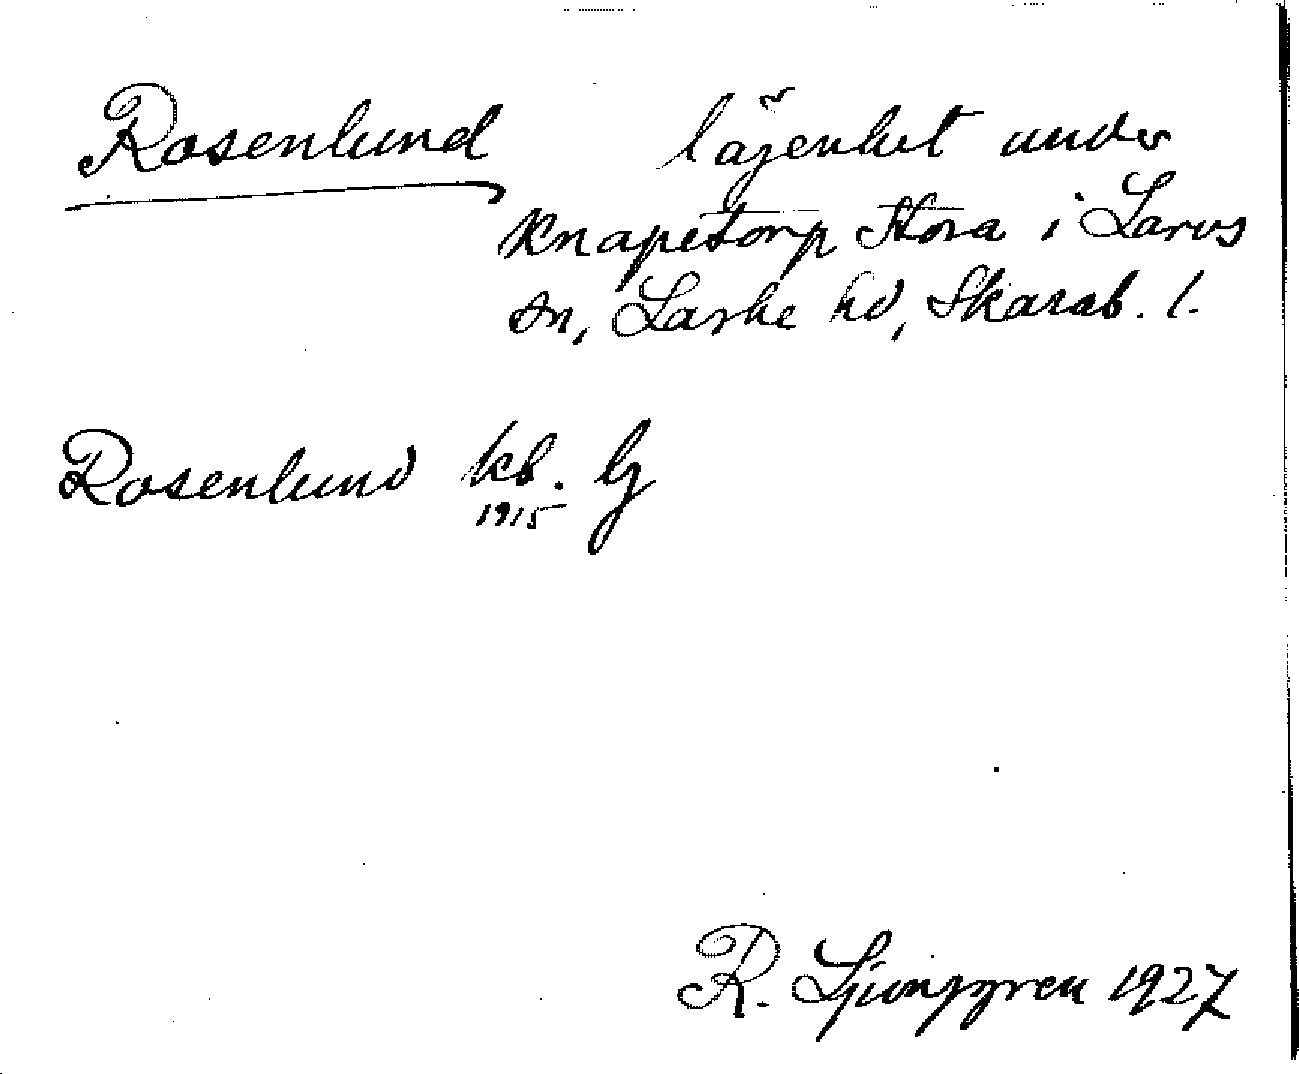 Rosenlund lägenhet under
Knapetorp Stora i Larvs
sn, Laske hd, Skarab. l.
Rosenlund kb. lj
1915
R. Ljunggren 1927